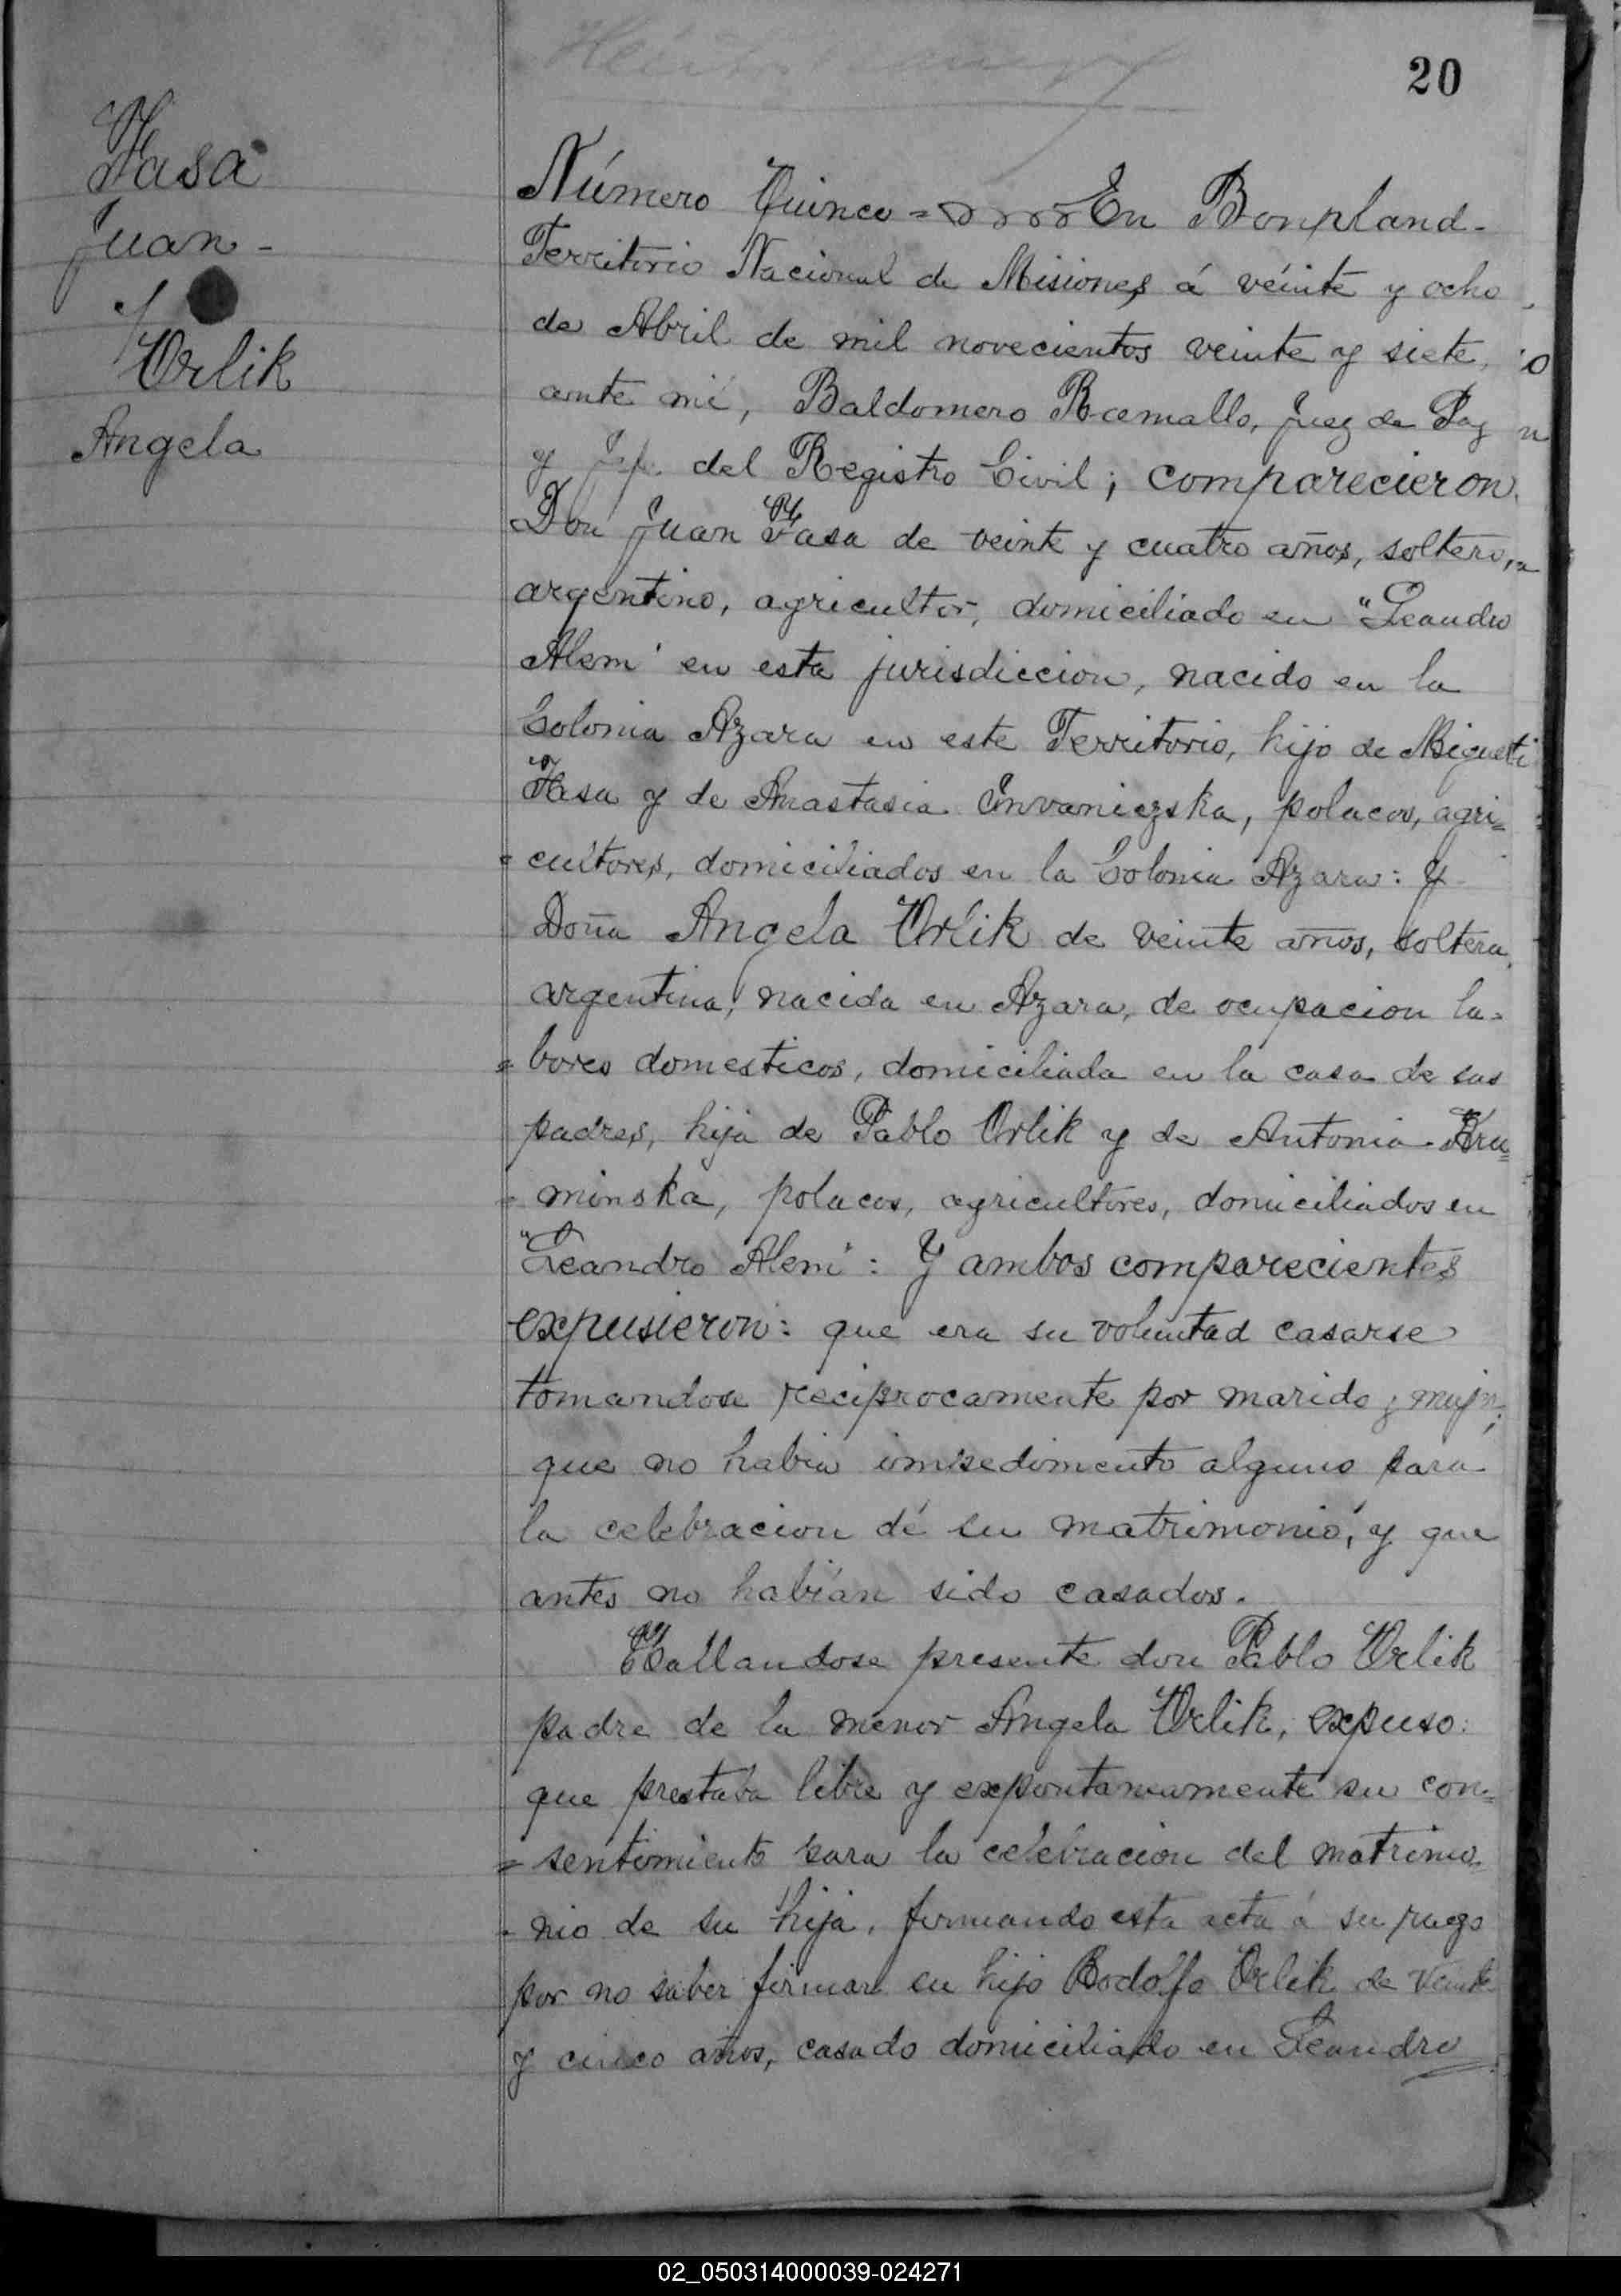 20
Fasa
Juan -
y
Orlik
Angela
Número Quince = En Bonpland -
Territorio Nacional de Misiones á veinte y ocho
de Abril de mil novecientos veinte y siete,
ante mi, Baldomero Ramallo, Juez de Paz
y Jefe del Registro Civil; comparecieron
Don Juan Fasa de veinte y cuatro años, soltero,
argentino, agricultor, domiciliado en "Leandro
Alem" en esta jurisdiccion, nacido en la
Colonia Azara en este Territorio, hijo de Miguel
Fasa y de Anastasia, polacos, agri=
=cultores, domiciliados en la Colonia Azara: Y
Doña Angela Orlik de veinte años, soltera,
argentina, nacida en Azara, de ocupacion la=
=bores domesticos, domiciliada en la casa de sus
padres, hija de Pablo Orlik y de Antonia Kru=
=minska, polacos, agricultores, domiciliados en
"Leandro Alem": Y ambos comparecientes
expusieron: que era su voluntad casarse
tomandose reciprocamente por marido y mujer;
que no habia impedimento alguno para
la celebracion de su matrimonio, y que
antes no habían sido casados.
Hallandose presente don Pablo Orlik
padre de la menor Angela Orlik, expuso:
que prestaba libre y expontaneamente su con=
=sentimiento para la celebracion del matrimo=
=nio de su hija, firmando esta acta á su ruego
por no saber firmar su hijo Rodolfo Orlik de veinte
y cinco años, casado domiciliado en Leandro
02_050314000039-024271